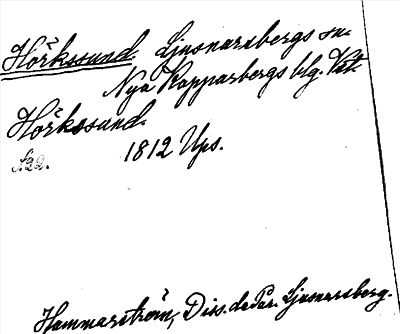 Hörkssund. Ljusnarsbergs sn.
Nya Kopparbergs blg. Vstm.
Hörkssund.
S. 22.
1812 Ups.
Hammarström, Diss. de Par. Ljusnarsberg.